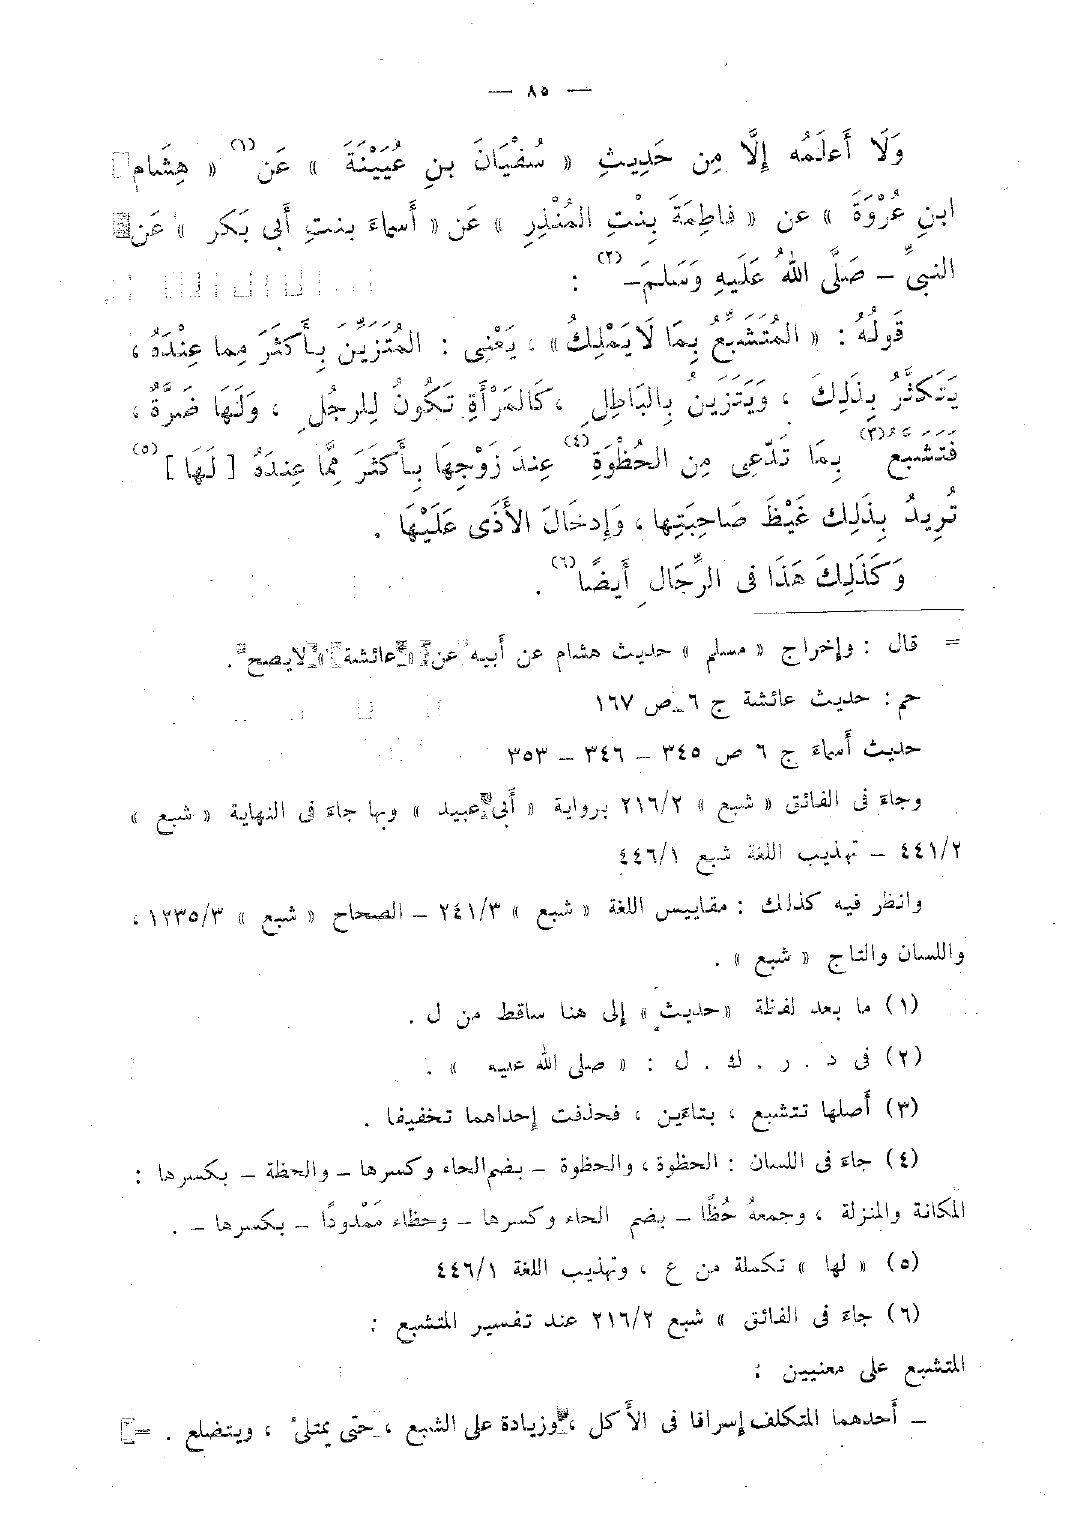 — ٨٥ —
وَلَا أَعلَمُه إِلَّا مِن حَدِيثِ « سُفْيَانَ بنِ عُيَيْنَةَ » عَن(١) « هِشَام
ابنِ عُرْوَةَ » عن « فاطِمَةَ بِنْتِ المُنْذِرِ » عَن « أَسماءَ بنتِ أَبى بَكر » عَن
النبىِّ – صَلَّى اللهُ عَلَيهِ وَسَلمَ–(٢) :
قَولُهُ : « المُتَشَبِّعُ بِمَا لَا يَمْلِكُ » ، يَعْنِى : المُتَزَيِّنَ بِأَكثَرَ مِما عِنْدَهُ ،
يَتَكَثَّرُ بِذَلِكَ ، وَيَتَزَينُ بِالبَاطِلِ ، كَالمَرْأَةِ تَكُونُ لِلرجُلِ ، وَلَهَا ضَرَّةٌ ،
فَتَشَبَّعُ(٣) بِمَا تَدَّعِى مِن الحُظْوَةِ(٤) عِندَ زَوْجِهَا بِأَكثَرَ مِمَّا عِندَهُ [ لَهَا ](٥)
تُرِيدُ بِذَلِك غَيْظَ صَاحِبَتِها ، وَإِدخَالَ الأَذَى عَلَيْهَا .
وَكَذَلِكَ هَذَا فى الرِّجَالِ أَيضًا(٦) .
= قال : وإخراج « مسلم » حديث هشام عن أبيه عن « عائشة » لايصح .
حم : حديث عائشة ج ٦ ص ١٦٧
حديث أسماء ج ٦ ص ٣٤٥ – ٣٤٦ – ٣٥٣
وجاء فى الفائق « شبع » ٢١٦/٢ برواية « أبى عبيد » وبها جاء فى النهاية « شبع »
٤٤١/٢ – تهذيب اللغة شبع ٤٤٦/١
وانظر فيه كذالك : مقاييس اللغة « شبع » ٢٤١/٣ – الصحاح « شبع » ١٢٣٥/٣ ،
واللسان والتاج « شبع » .
(١) ما بعد لفظة «حديث» إلى هنا ساقط من ل .
(٢) فى د . ر . ك . ل : « صلى الله عليه » .
(٣) أصلها تتشبع ، بتاءين ، فحذفت إحداهما تخفيفا .
(٤) جاء فى اللسان : الحظوة ، والحظوة – بضم الحاء وكسرها – والحظة – بكسرها :
المكانة والمنزلة ، وجمعهُ حُظًا – بضم الحاء وكسرها – وحظاء مَمْدودًا – بكسرها – .
(٥) « لها » تكملة من ع ، وتهذيب اللغة ٤٤٦/١
(٦) جاء فى الفائق » شبع ٢١٦/٢ عند تفسير المتشبع :
المتشبع على معنيين :
– أَحدهما المتكلف إسرافا فى الأَكل ، وزيادة على الشبع ، حتى يمتلىْ ، ويتضلع . =